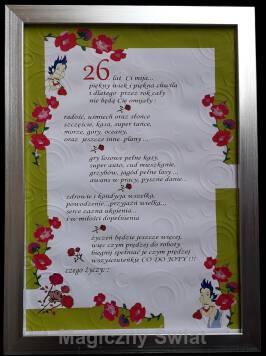 26 lat Ci mija...
piękny wiek i piękna chwila
i dlatego przez rok cały
nie będą Cię omijały :
radość, uśmiech oraz słońce
szczęście, kasa, super tańce,
morze, góry, oceany,
oraz jeszcze inne plany...
gry losowe pełne kasy,
super auto, cud mieszkanie,
grzybów, jagód pełne lasy...
awans w pracy, pyszne danie...
zdrowie i kondycja wszelka,
powodzenie..przyjaźń wielka...
serce zazna ukojenia...
i w miłości dopełnienia
życzeń będzie jeszcze więcej,
więc czym prędzej do roboty
biegnij spełniać je czym prędzej
wszyściuteńkie CO DO JOTY !!!
czego życzy:
Magiczny Swiat